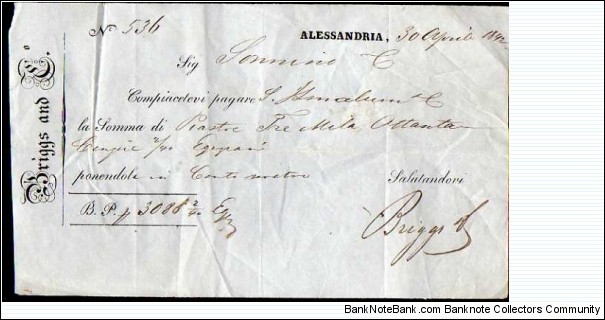 Briggs and Co.
No 536
ALESSANDRIA, 30 Aprile 1842
Sig Sonnino C
Compiacetevi pagare S. &C
la Somma di Piastre Tre Mila Ottanta
Cinque 2/40 Egiziane
ponendole in Conto nostro Salutandovi
B. P. 3085 2/40 Egiz
Briggs
BankNoteBank.com -Banknote Collectors Community